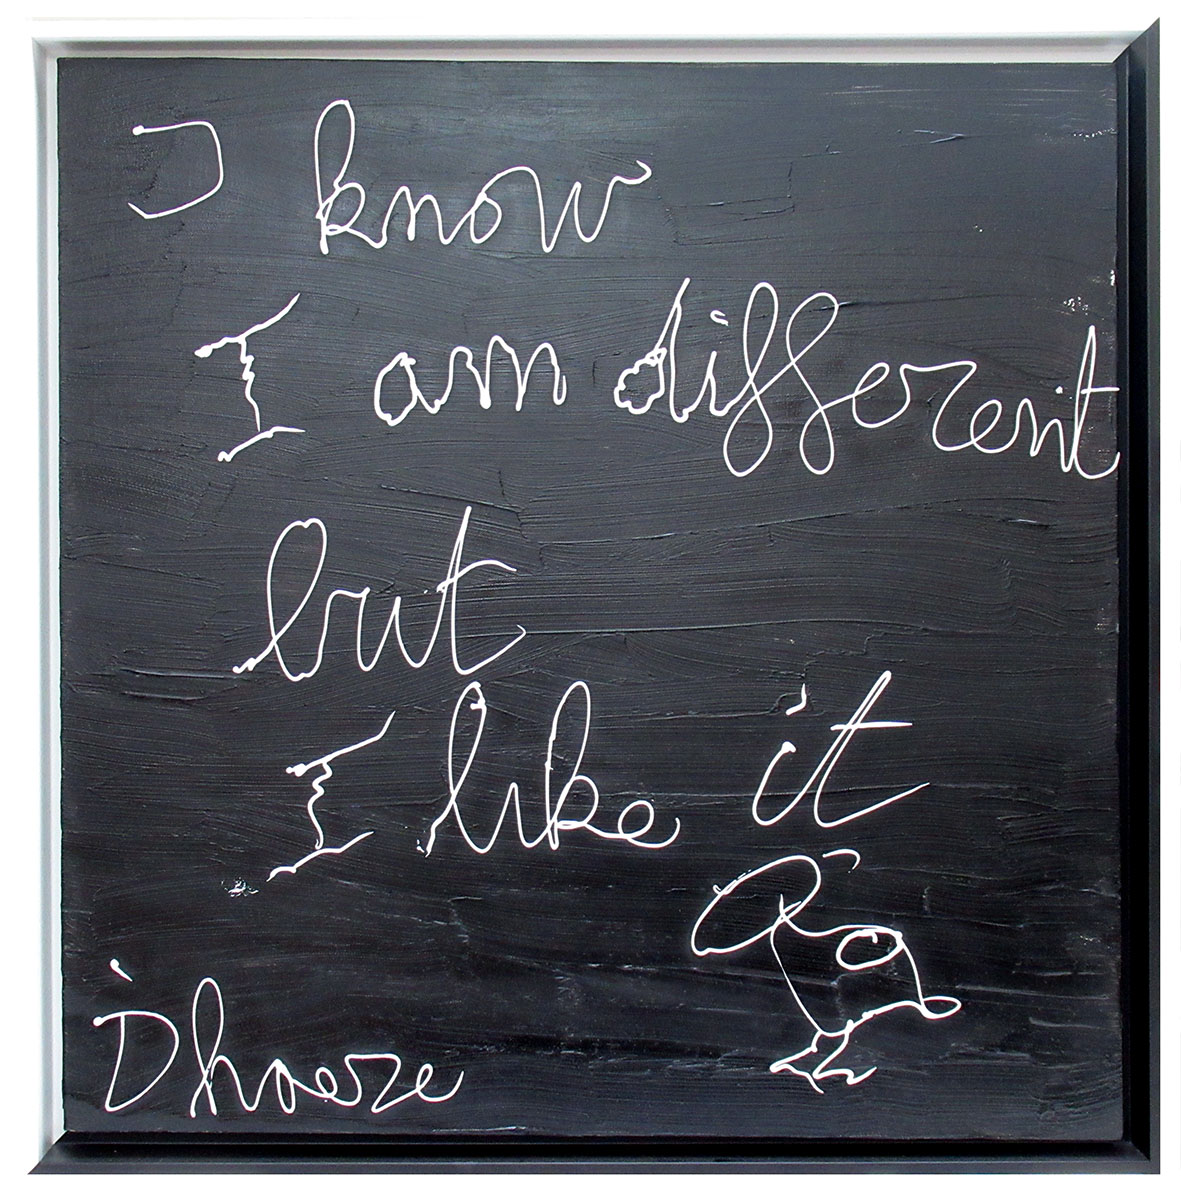 I know
I am different
but
I like it
D'haese